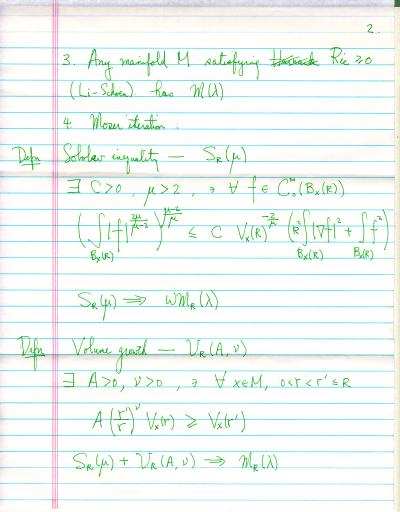 2.
3. Any manifold M satisfying Ric ≥ 0
(Li-Schoen). has M(λ)
4. Moser iteration.
Defn Sobolev inequality — S_R(μ)
∃ C>0, μ>2, ∋ ∀ f ∈ C_0^∞(B_x(R))
(∫_{B_x(R)} |f|^{2μ/(μ-2)})^{(μ-2)/μ} ≤ C V_x(R)^{-2/μ} (R^2 ∫_{B_x(R)} |∇f|^2 + ∫_{B_x(R)} f^2)
S_R(μ) ⟹ WM_R(λ)
Defn Volume growth — V_R(A, ν)
∃ A>0, ν>0, ∋ ∀ x∈M, 0<r<r'≤R
A (r'/r)^ν V_x(r) ≥ V_x(r')
S_R(μ) + V_R(A, ν) ⟹ M_R(λ)